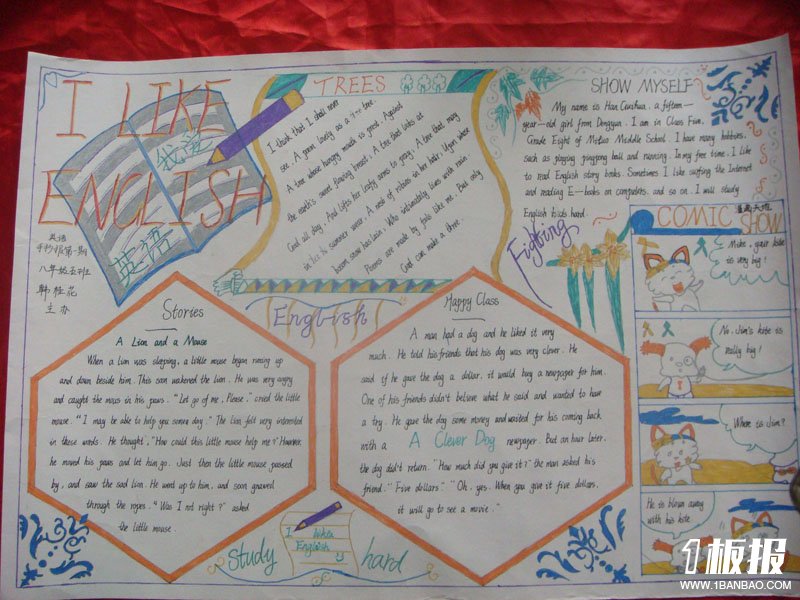 I LIKE
ENGLISH
我爱
英语
英语
手抄报第一期
八年级五班
韩桂花
主办
TREES
I think that I shall never
see A poem lovely as a tree
A tree whose hungry mouth is prest Against
the earth's sweet flowing breast, A tree that looks at
God all day, And lifts her leafy arms to pray; A tree that may
in summer wear, A nest of robins in her hair; Upon whose
bosom snow has lain; Who intimately lives with rain.
Poems are made by fools like me, But only
God can make a tree.
SHOW MYSELF
My name is Han Guihua, a fifteen-
year-old girl from Dongyun. I am in Class Five,
Grade Eight of Middle School. I have many hobbies,
such as playing pingpong ball and running. In my free time, I like
to read English story books. Sometimes I like surfing the Internet
and reading E-books on computers, and so on. I will study
English hard.
Fighting
English
COMIC SHOW
Mike, your kite
is very big!
No, Jim's kite is
really big!
Where is Jim?
He is blown away
with his kite.
Stories
A Lion and a Mouse
When a lion was sleeping, a little mouse began runing up
and down beside him. This soon wakened the lion. He was very angry
and caught the mous in his paws. "Let go of me, Please," cried the little
mouse. "I may be able to help you someday." The lion felt very interested
in these words. He thought, "How could this little mouse help me?" However,
he moved his paws and let him go. Just then the little mouse passed
by, and saw the sad lion. He went up to him, and soon gnawed
through the ropes. "Was I not right?" asked
the little mouse.
Happy Class
A man had a dog and he liked it very
much. He told his friends that his dog was very clever. He
said if he gave the dog a dollar, it would buy a newspaper for him.
One of his friends didn't believe what he said and wanted to have
a try. He gave the dog some money and waited for his coming back
with a A Clever Dog newspaper. But an hour later,
the dog didn't return. "How much did you give it?" the man asked his
friend. "Five dollars." "Oh, yes. When you give it five dollars,
it will go to see a movie."
Study
I like
English
hard
1板报
WWW.1BANBAO.COM